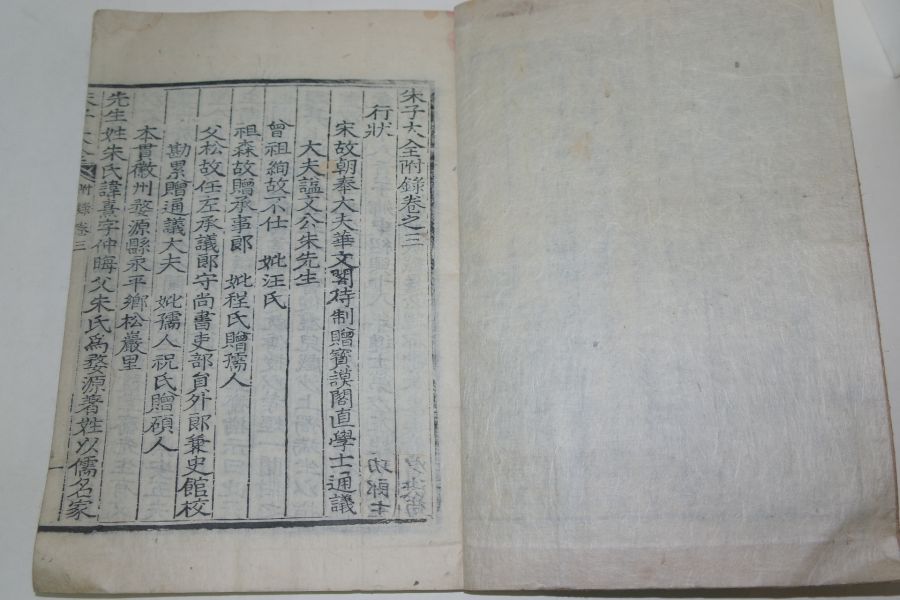 朱子大全附錄卷之三
行狀
宋故朝奉大夫華文閣待制贈寶謨閣直學士通議
大夫諡文公朱先生
曾祖絢故不仕 妣汪氏
祖森故贈承事郎 妣程氏贈孺人
父松故任左承議郎守尚書吏部員外郎兼史館校
勘累贈通議大夫 妣孺人祝氏贈碩人
本貫徽州婺源縣永平鄉松巖里
先生姓朱氏諱熹字仲晦父朱氏爲婺源著姓以儒名家
附錄卷三
一